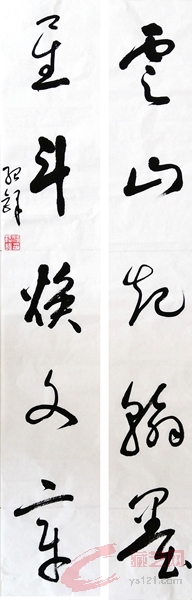 雲山起翰墨
星斗焕文章
ya121.com